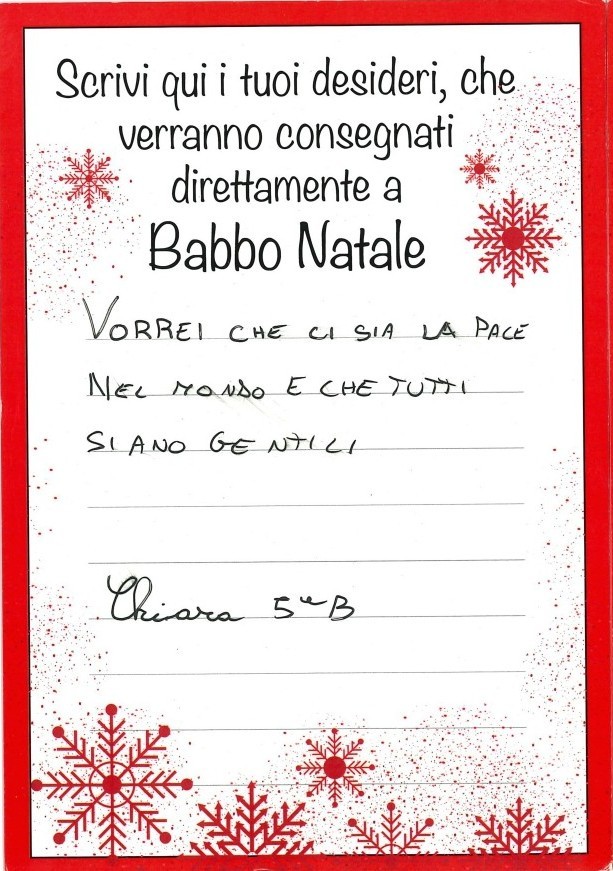 Scrivi qui i tuoi desideri, che
verranno consegnati
direttamente a
Babbo Natale
VORREI CHE CI SIA LA PACE
NEL MONDO E CHE TUTTI
SIANO GENTILI
Chiara 5ªB